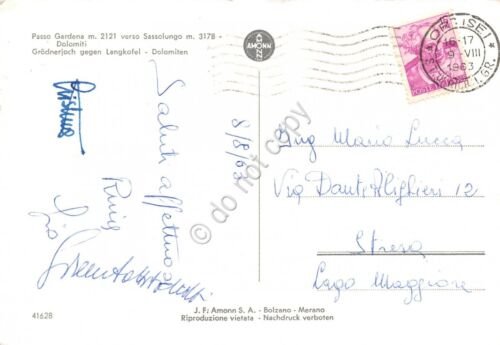 Passo Gardena m. 2121 verso Sassolungo m. 3178
Dolomiti
Grödnerjoch gegen Langkofel - Dolomiten
AMONN
BOZEN
8/8/63
Saluti affettuosi
ORTISEI
16-17
9 VIII
1963
Ing Mario Lucca
Via Dante Alighieri 12
Stresa
Lago Maggiore
© do not copy
J. F. Amonn S. A. - Bolzano - Merano
Riproduzione vietata - Nachdruck verboten
41628